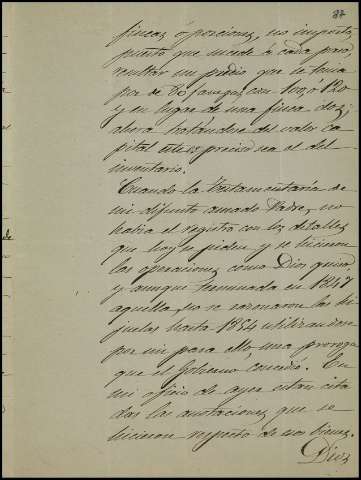 87
fincas ó porciones, no importa,
puesto que sucede á cada paso
resultar un predio que se tenia
por de 80 fanegas con 100, ó 120
y en lugar de una finca dos;
ahora tratándose del valor ca-
pital este es preciso sea el del
inventario.
Cuando la testamentaría de
mi difunto amado Padre, no
habia el registro con los detalles
que hoy se piden y se hicieron
las operaciones como Dios quiso,
y aunque terminada en 1847
aquella, no se razonaron las hi-
juelas hasta 1854 utilizandose
por mi para ello una proroga
que el Gobierno concedió. En
mi oficio de ayer estan cita
das las anotaciones que se
hicieron respecto de esos bienes.
Dios